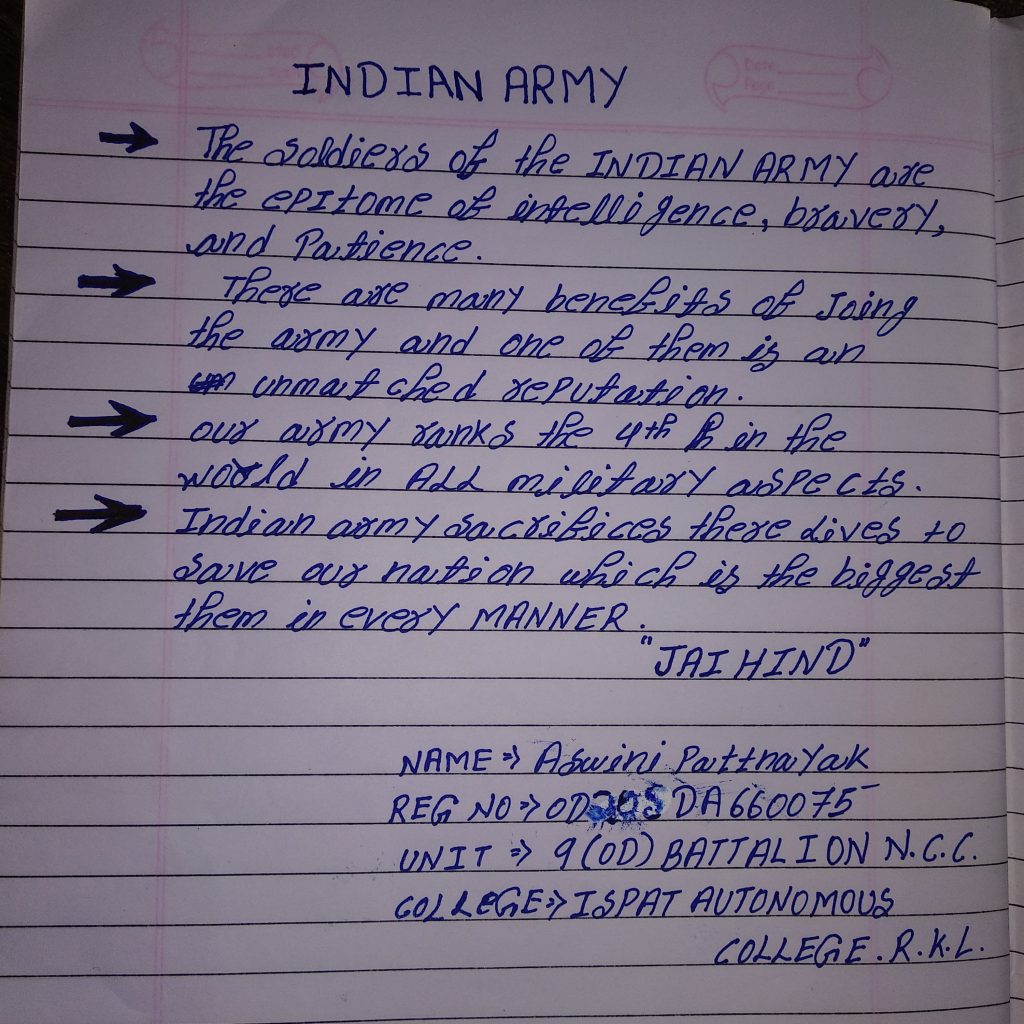 INDIAN ARMY
→ The soldiers of the INDIAN ARMY are
the epitome of intelligence, bravery,
and Patience.
→ There are many benefits of Joing
the army and one of them is an
unmatched reputation.
→ our army ranks the 4th in the
world in ALL military aspects.
→ Indian army sacrifices there lives to
save our nation which is the biggest
them in every MANNER.
"JAI HIND"
NAME ⇒ Aswini Pattnayak
REG NO ⇒ DA660075
UNIT ⇒ 9(OD) BATTALION N.C.C.
COLLEGE ⇒ ISPAT AUTONOMOUS
COLLEGE. R.K.L.